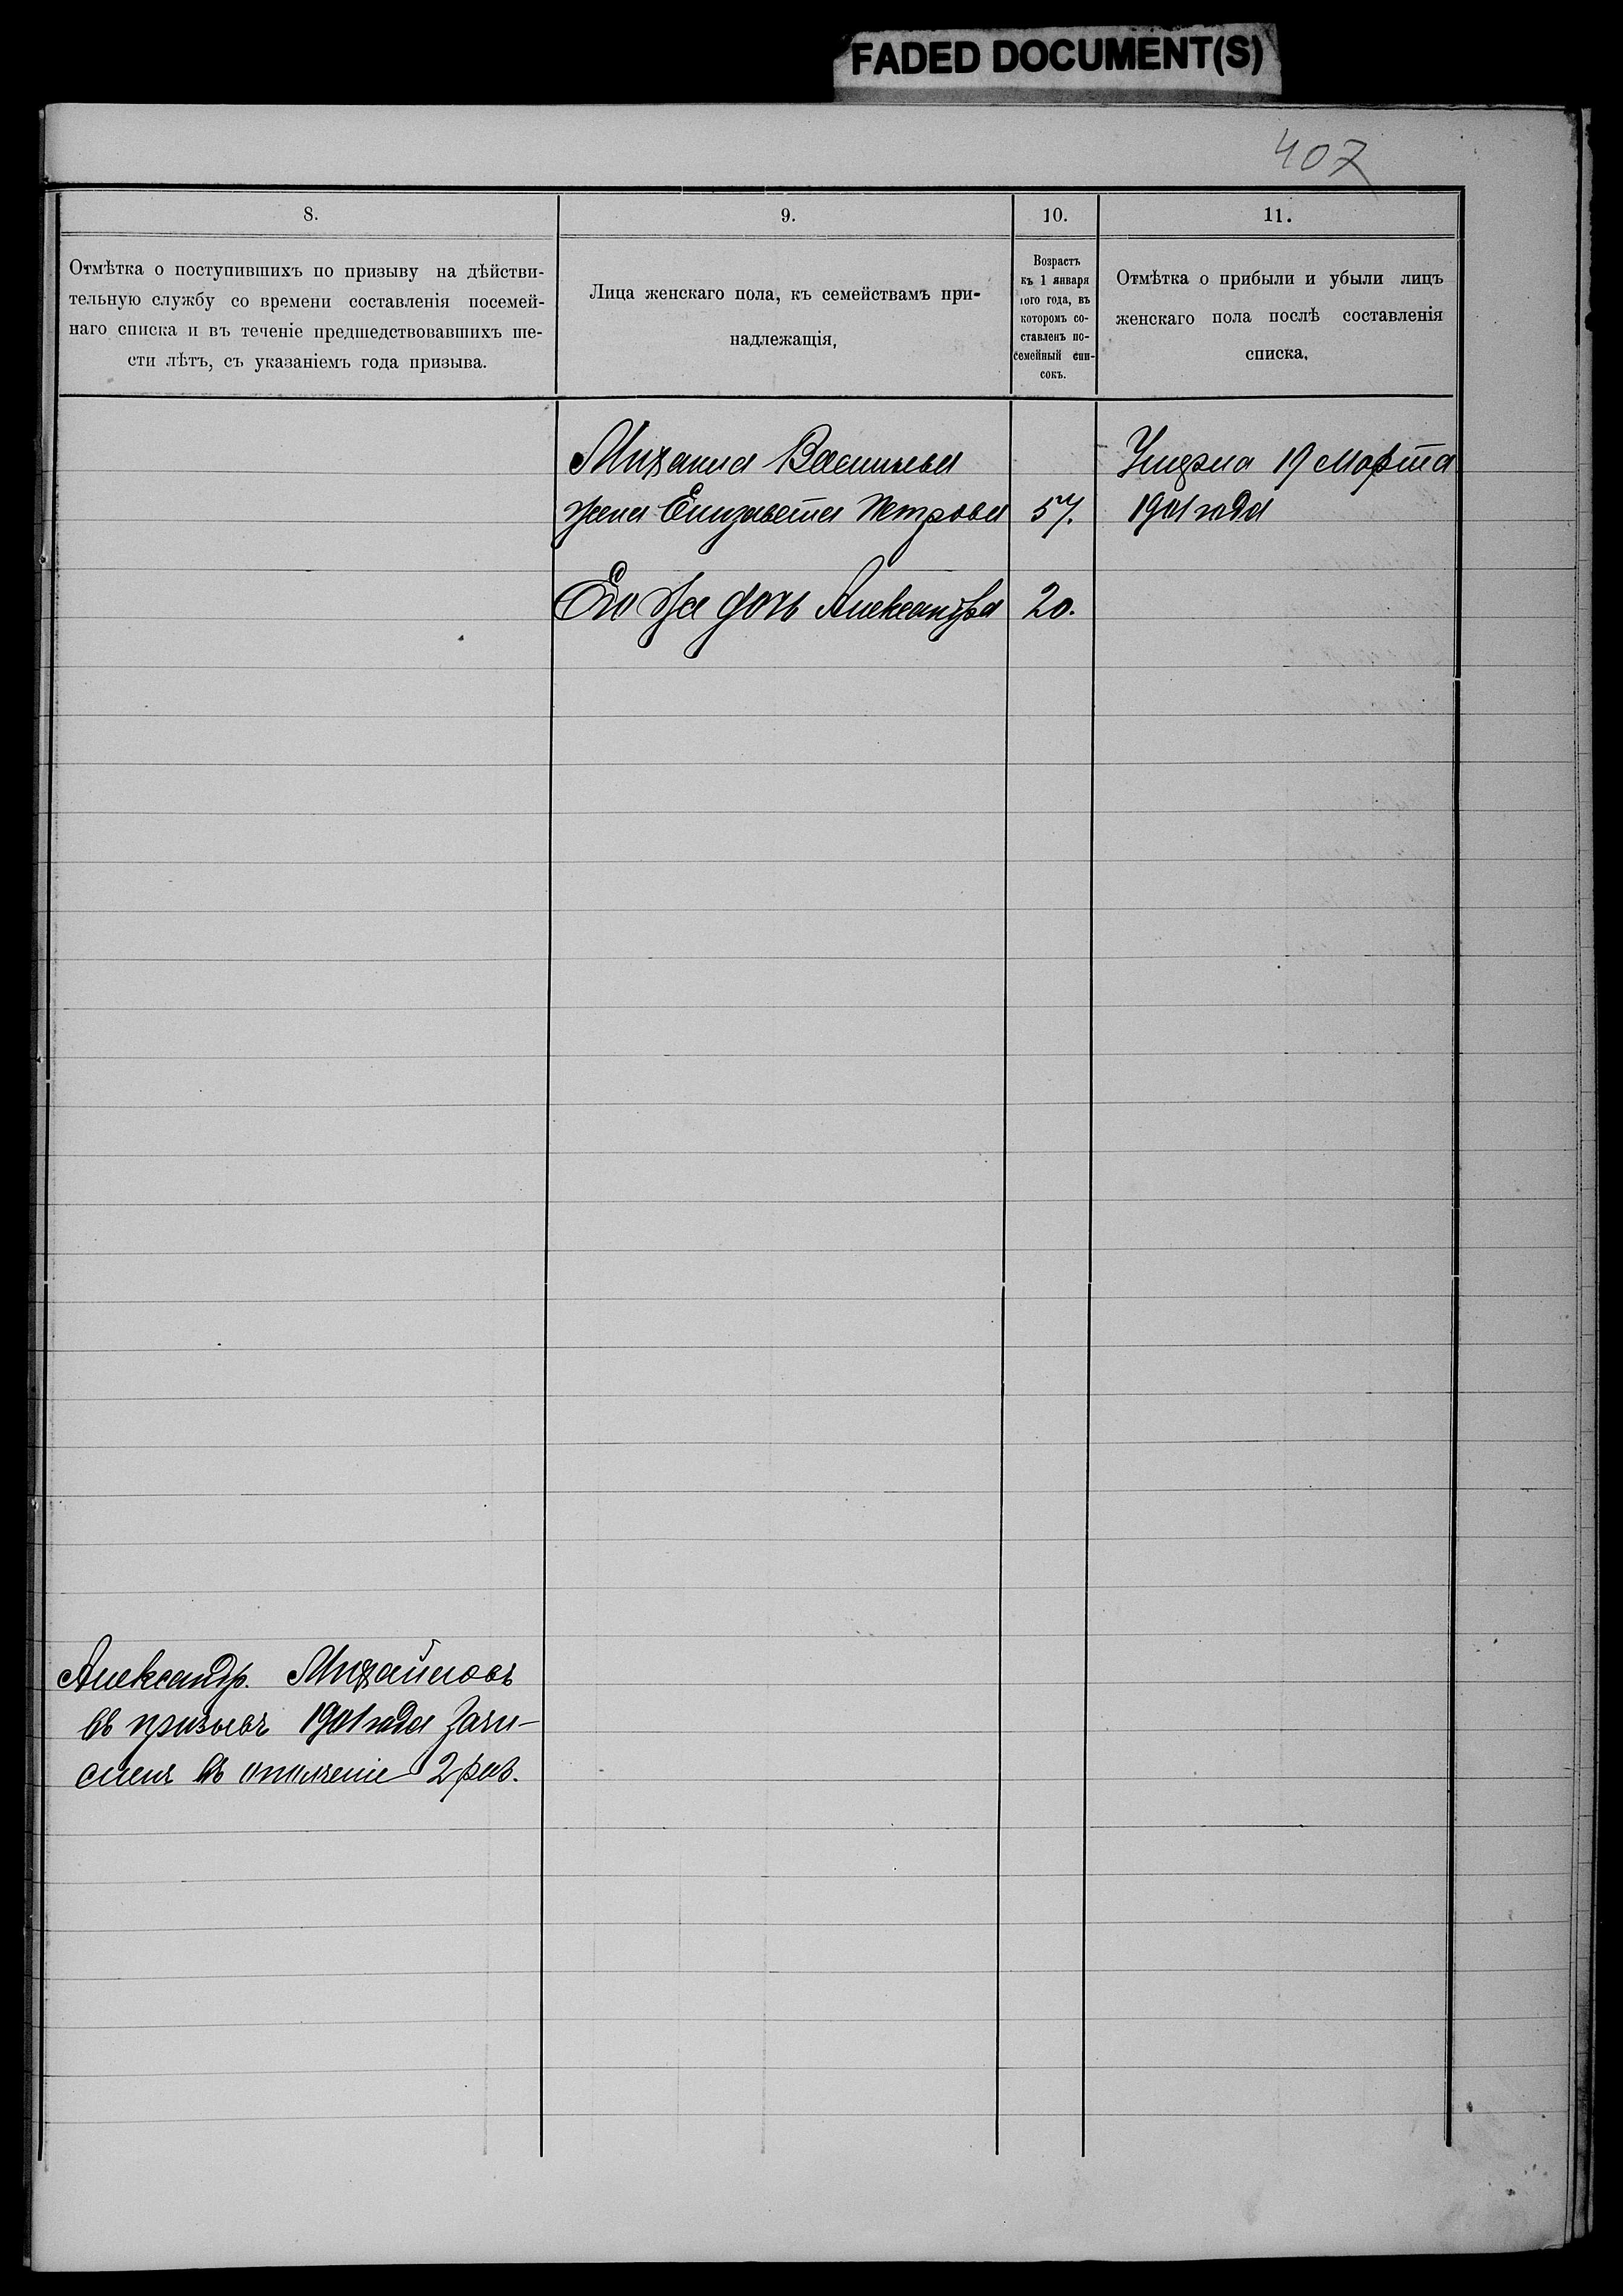 FADED DOCUMENT(S)
407
8.
Отмѣтка о поступившихъ по призыву на дѣйстви-
тельную службу со времени составленія посемей-
наго списка и въ теченіе предшедствовавшихъ ше-
сти лѣтъ, съ указаніемъ года призыва.
9.
Лица женскаго пола, къ семействамъ при-
надлежащія,
10.
Возрастъ
къ 1 января
того года, въ
которомъ со-
ставленъ по-
семейный спи-
сокъ.
11.
Отмѣтка о прибыли и убыли лицъ
женскаго пола послѣ составленія
списка,
Михаила Васильева
жена Елизавета Петрова 57.
Умерла 19 Марта
1901 года
Его же дочь Александра 20.
Александр. Михайловъ
въ призывъ 1901 года зачи-
сленъ въ ополченіе 2 раз.